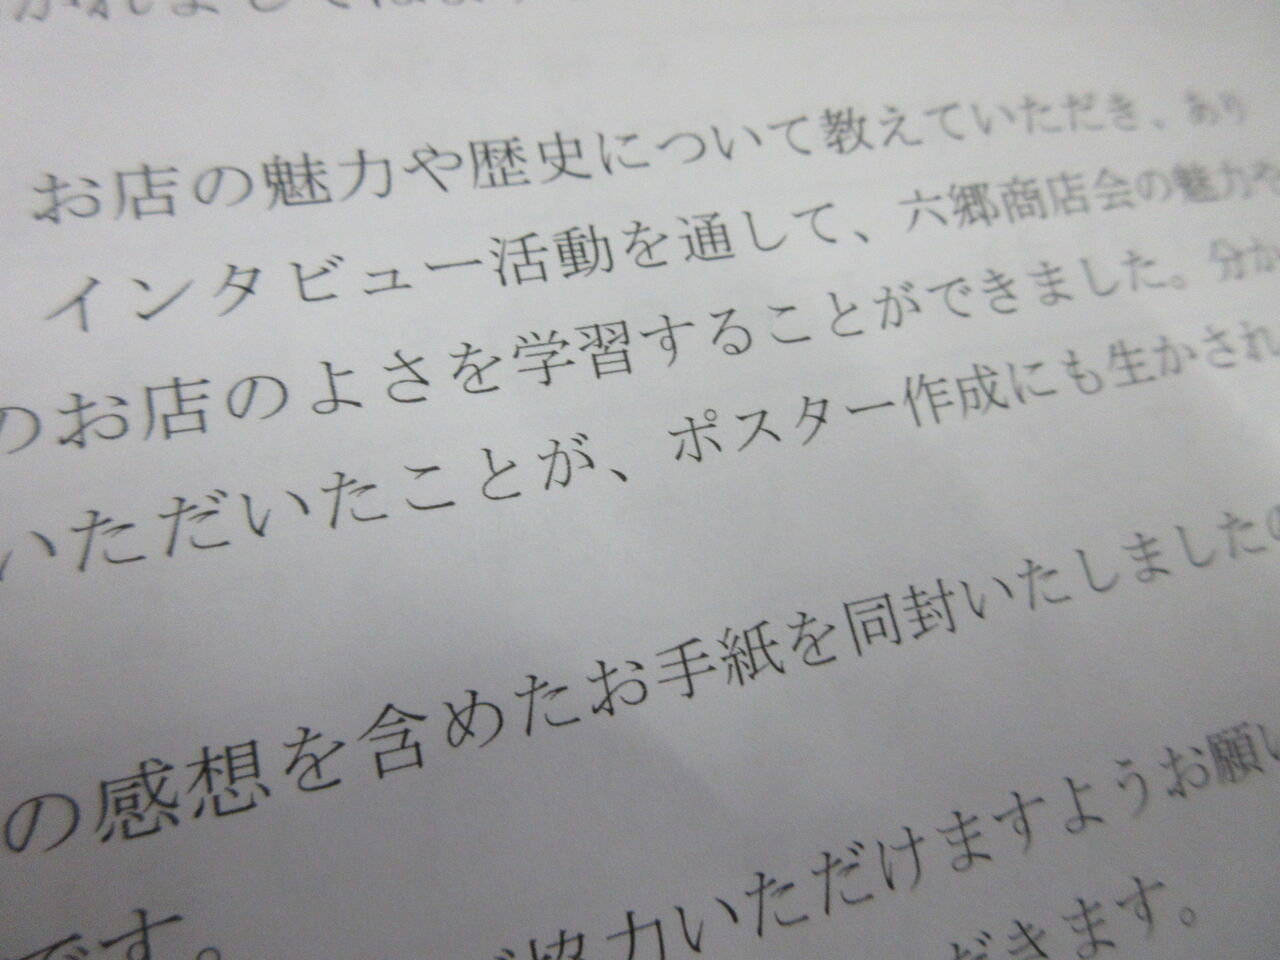 お店の魅力や歴史について教えていただき、あり
インタビュー活動を通して、六郷商店会の魅力や
のお店のよさを学習することができました。分か
いただいたことが、ポスター作成にも生かされ
の感想を含めたお手紙を同封いたしましたの
協力いただけますようお願い
です。
だきます。